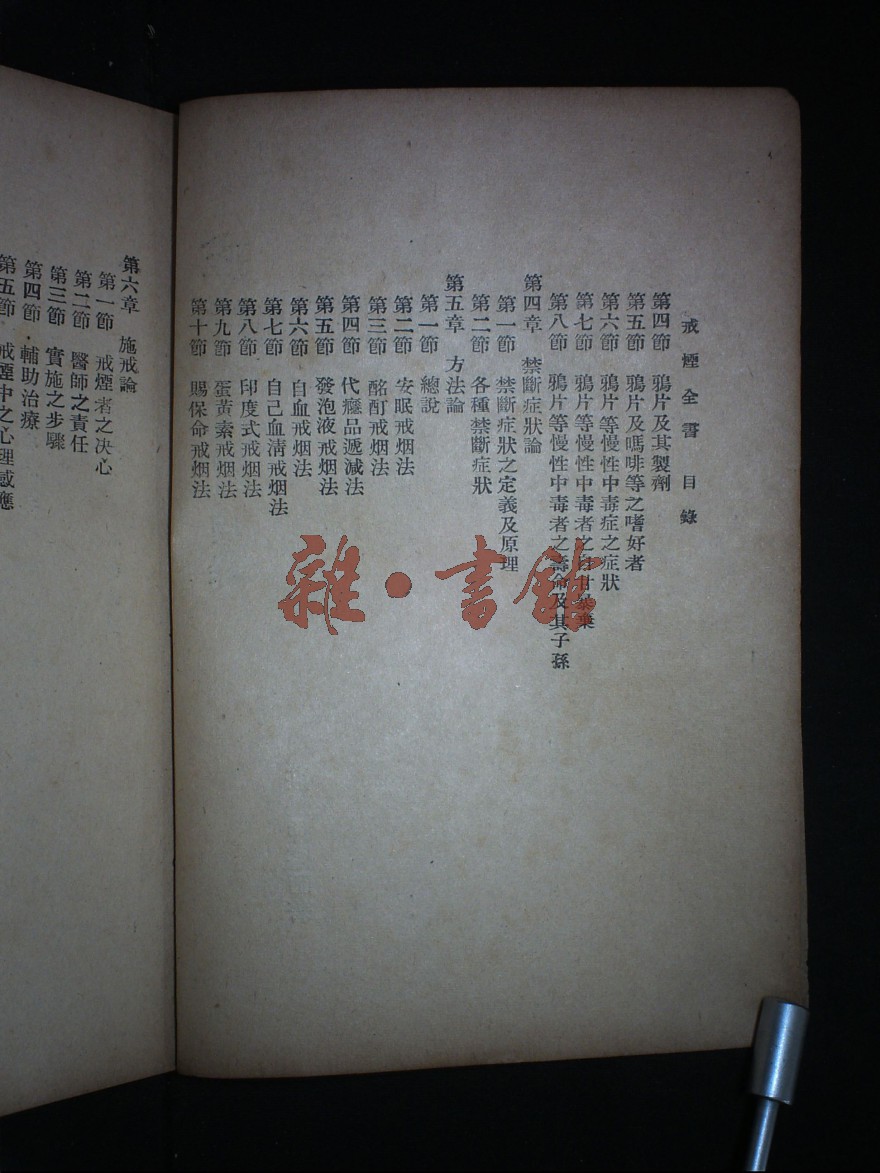 戒煙全書 目錄
第四節 鴉片及其製劑
第五節 鴉片及嗎啡等之嗜好者
第六節 鴉片等慢性中毒症之症狀
第七節 鴉片等慢性中毒者之自甘暴棄
第八節 鴉片等慢性中毒者之壽命及其子孫
第四章 禁斷症狀論
第一節 禁斷症狀之定義及原理
第二節 各種禁斷症狀
第五章 方法論
第一節 總說
第二節 安眠戒烟法
第三節 酩酊戒烟法
第四節 代癮品遞減法
第五節 發泡液戒烟法
第六節 自血戒烟法
第七節 自己血清戒烟法
第八節 印度式戒烟法
第九節 蛋黃素戒烟法
第十節 賜保命戒烟法
第六章 施戒論
第一節 戒煙者之決心
第二節 醫師之責任
第三節 實施之步驟
第四節 輔助治療
第五節 戒煙中之心理感應
雜·書館